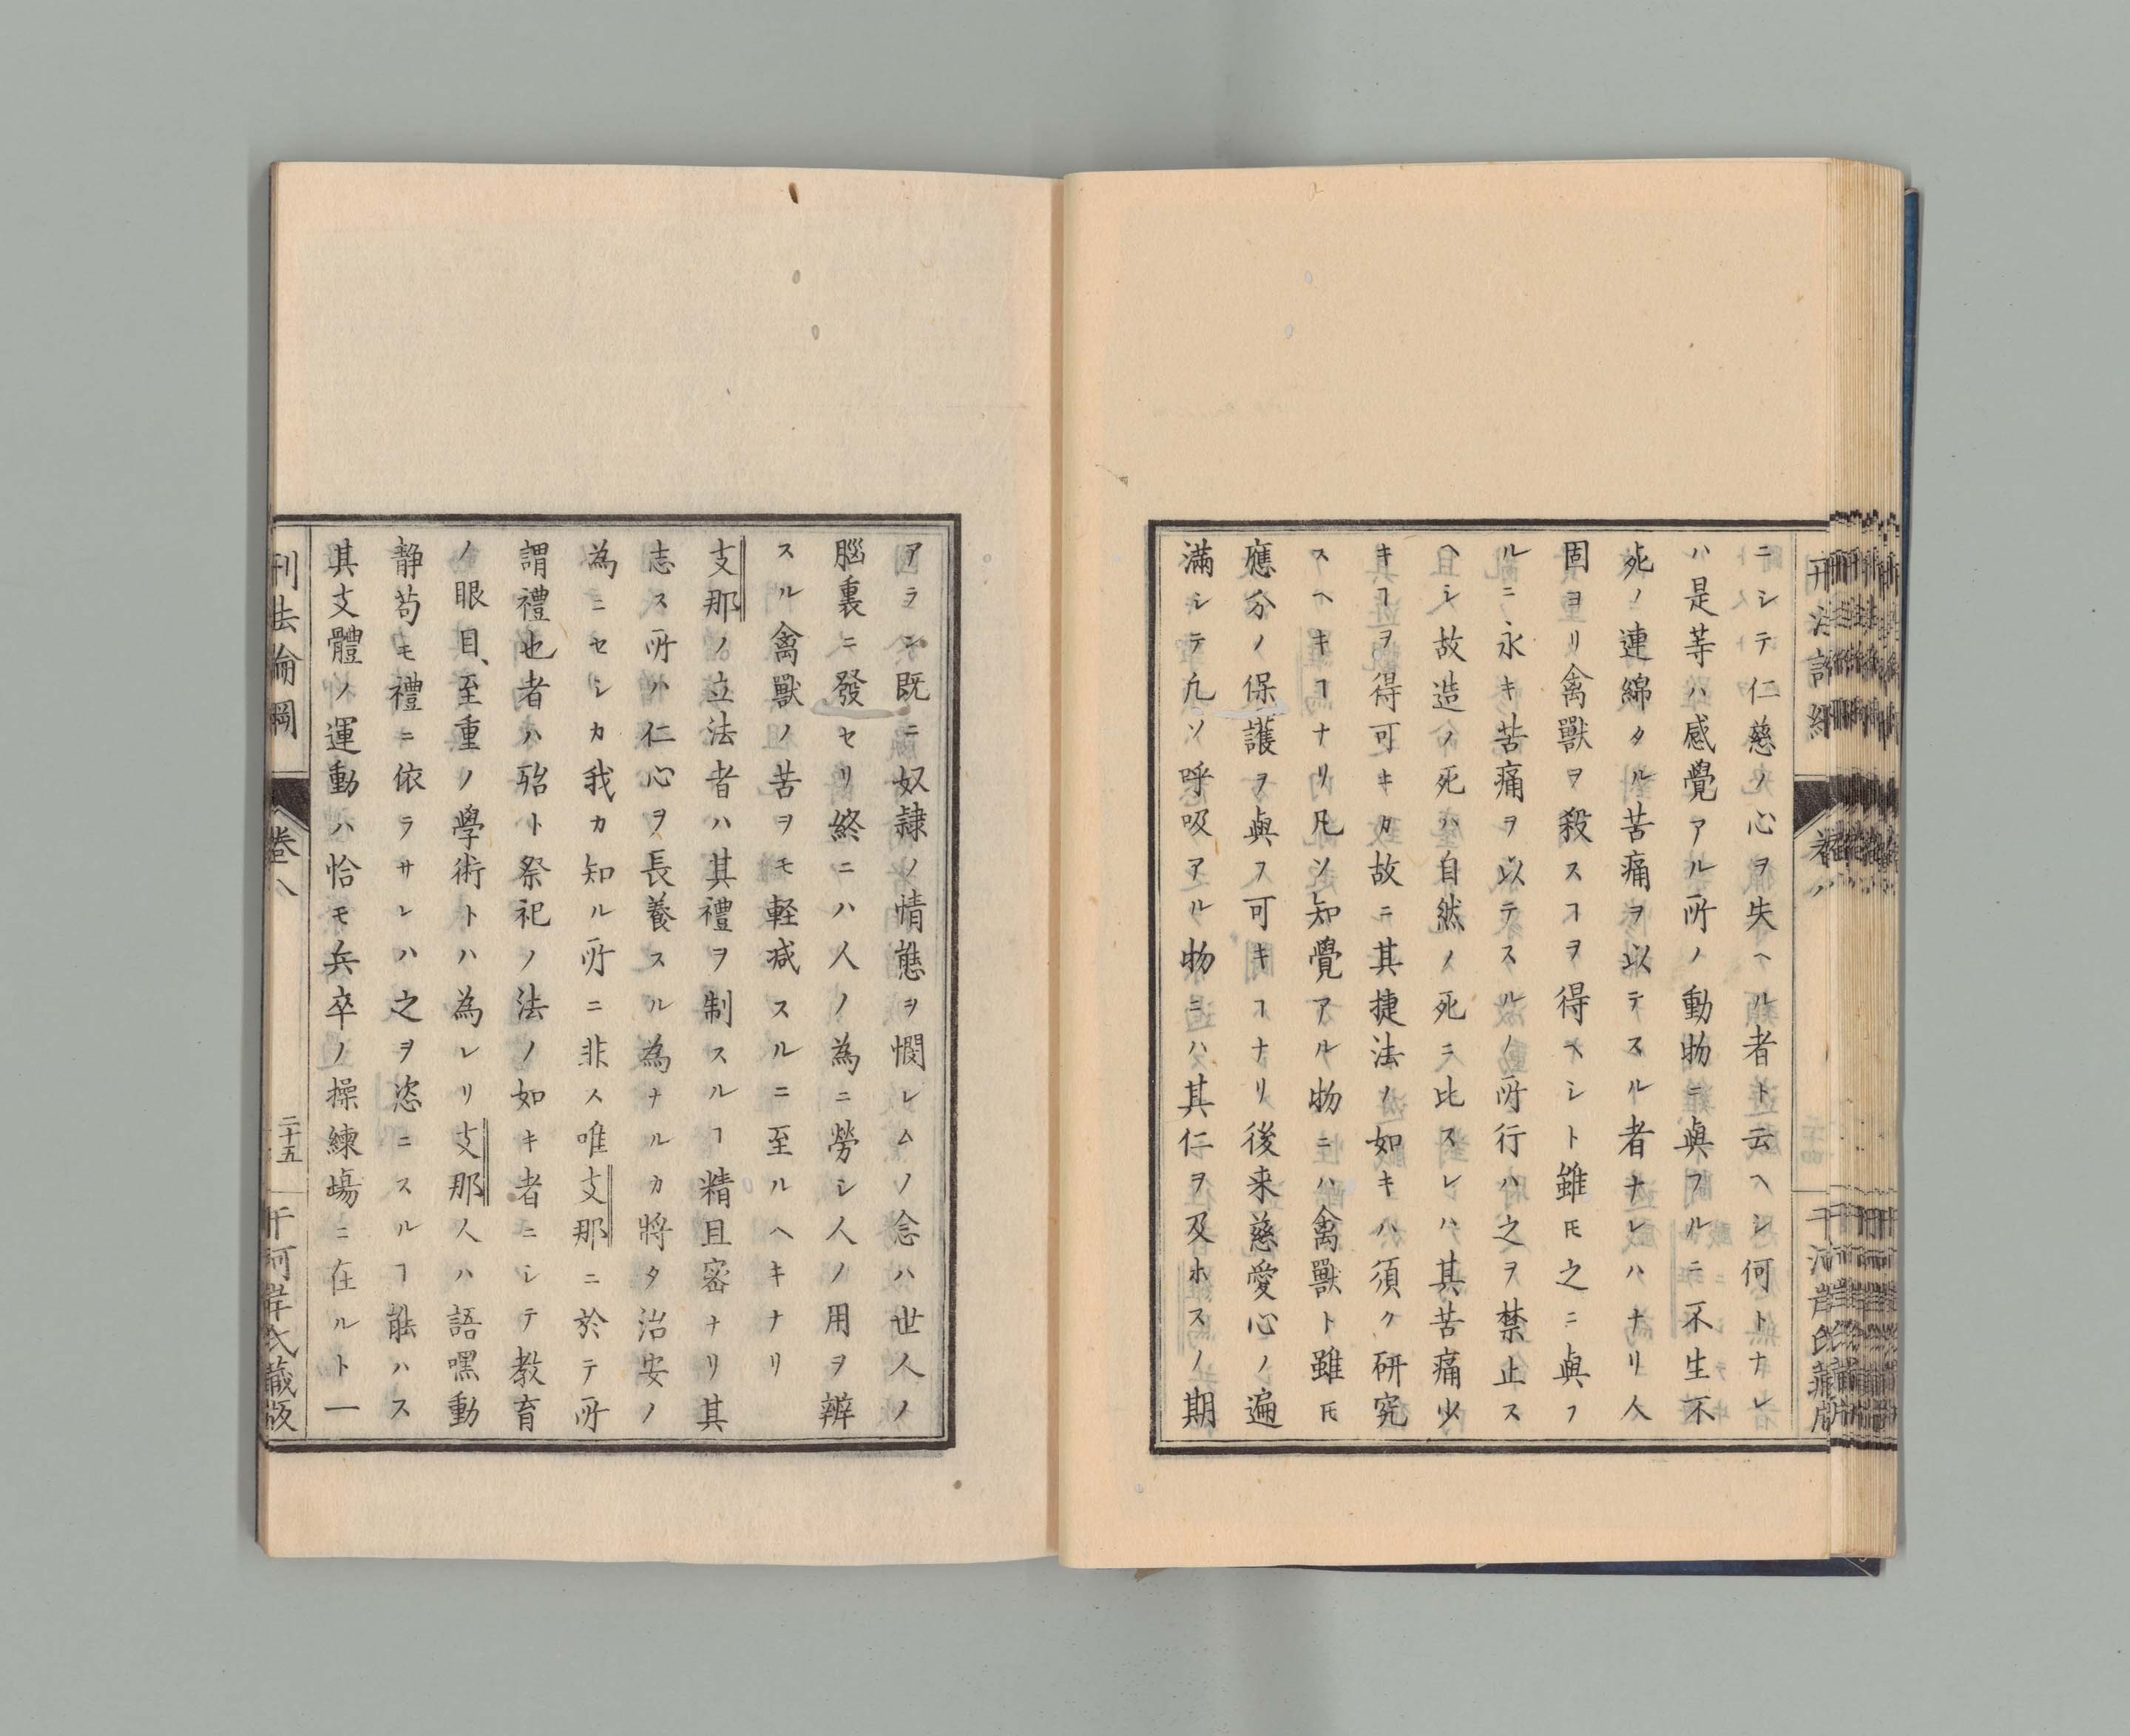 ニシテ仁慈ノ心ヲ失ヘル者ト云ヘシ何トナレ
ハ是等ハ感覺アル所ノ動物ニ與フルニ不生不
死ノ連綿タル苦痛ヲ以テスル者ナレハナリ人
固ヨリ禽獸ヲ殺スヿヲ得ヘシト雖𪜈之ニ與フ
ルニ永キ苦痛ヲ以テスルノ所行ハ之ヲ禁止ス
ヘシ故造ノ死ハ自然ノ死ニ比スレハ其苦痛少
キヿヲ得可キカ故ニ其捷法ノ如キハ須ク研究
スヘキヿナリ凡ソ知覺アル物ニハ禽獸ト雖𪜈
應分ノ保護ヲ與フ可キヿナリ後来慈愛心ノ遍
滿シテ凡ソ呼吸アル物ニハ其仁ヲ及ホスノ期
アラン既ニ奴隷ノ情態ヲ憫レムノ念ハ世人ノ
腦裏ニ發セリ終ニハ人ノ為ニ勞シ人ノ用ヲ辨
スル禽獸ノ苦ヲモ軽減スルニ至ルヘキナリ
支那ノ立法者ハ其禮ヲ制スルヿ精且密ナリ其
志ス所ハ仁心ヲ長養スル為ナルカ將タ治安ノ
為ニセシカ我カ知ル所ニ非ス唯支那ニ於テ所
謂禮也者ハ殆ト祭祀ノ法ノ如キ者ニシテ教育
ノ眼目、至重ノ學術トハ為レリ支那人ハ語嘿動
静苟モ禮ニ依ラサレハ之ヲ恣ニスルヿ能ハス
其支體ノ運動ハ恰モ兵卒ノ操練場ニ在ルト一
刑法論綱
卷八
二十五
干河岸氏蔵版